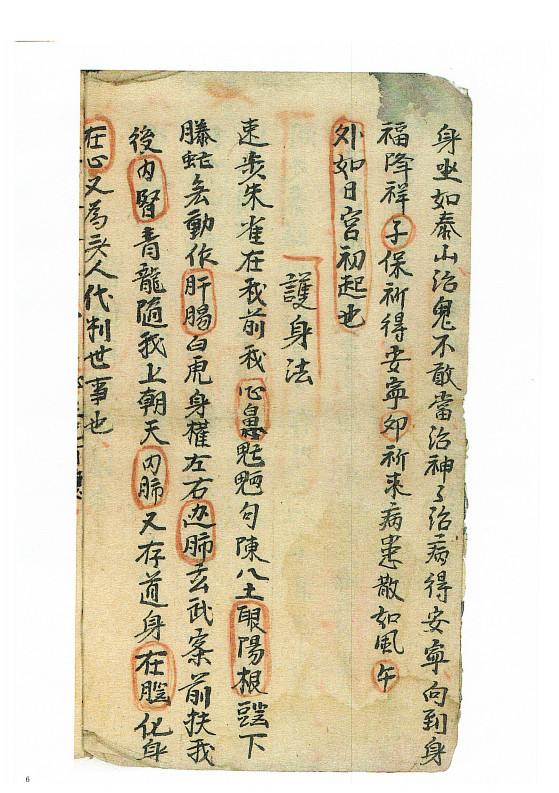 身坐如泰山治鬼不敢當治神々治病得安寧向到身
福降祥子保祈得安寧卯祈来病患散如風午
外如日宮初起也
護身法
速步朱雀在我前我心鼻魁魓句陳八土眼陽根頭下
螣蛇玄動作肝腸白虎身權左右边肺玄武案前扶我
後內腎青龍隨我上朝天內肺又存道身在膛化身
在心又為天人代判世事也
6